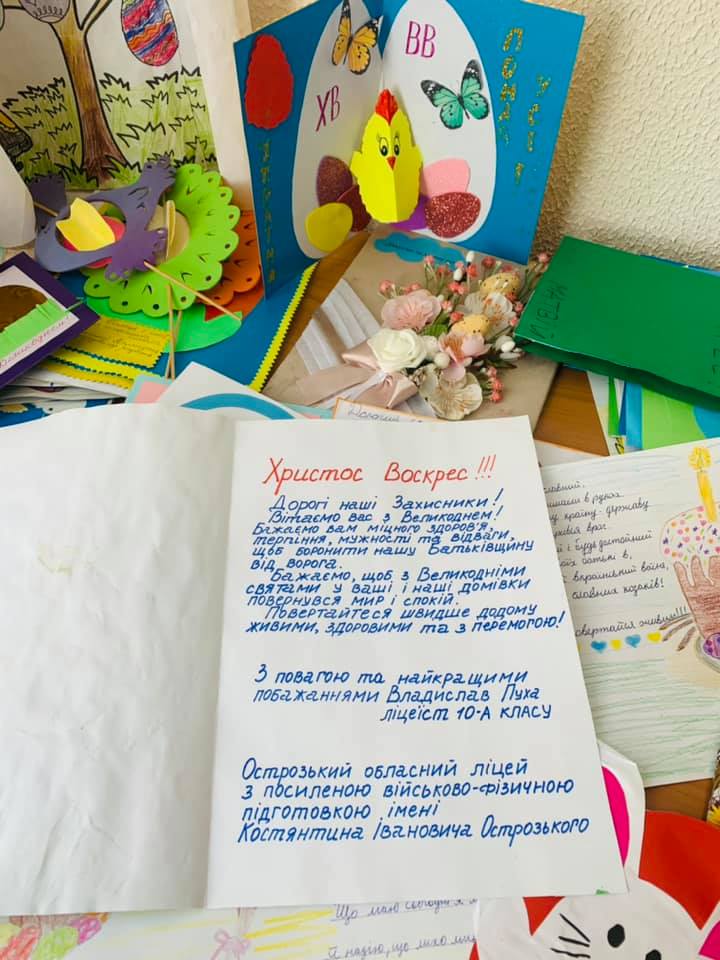 ХВ
ВВ
МАТВІЙ
Христос Воскрес!!!
Дорогі наші Захисники!
Вітаємо вас з Великоднем!
Бажаємо вам міцного здоров'я,
терпіння, мужності та відваги,
щоб боронити нашу Батьківщину
від ворога.
Бажаємо, щоб з Великодніми
святами у ваші і наші домівки
повернувся мир і спокій.
Повертайтеся швидше додому
живими, здоровими та з перемогою!
З повагою та найкращими
побажаннями Владислав Пуха
ліцеїст 10-А класу
Острозький обласний ліцей
з посиленою військово-фізичною
підготовкою імені
Костянтина Івановича Острозького
в руках
країну-державу
враг.
й і будь достойний
батькі в,
український воїна,
славних козаків!
овертайся живим!!!
Що маю сьогодні я
й надію, що лихо